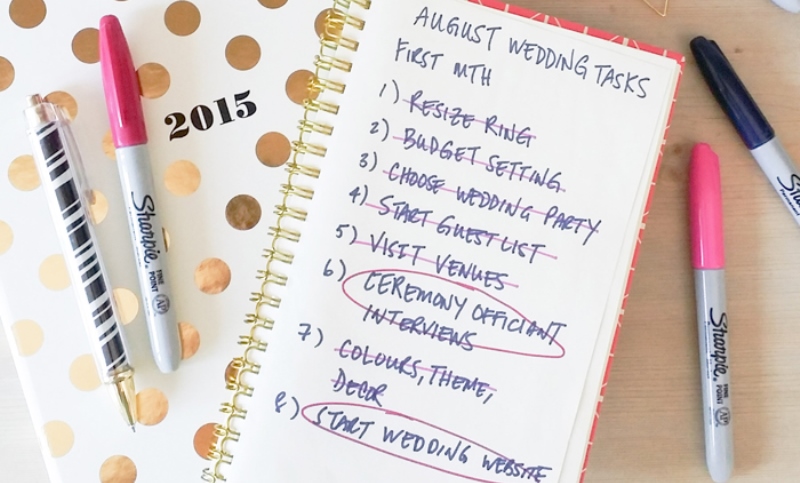 2015
AUGUST WEDDING TASKS
FIRST MTH
1) RESIZE RING
2) BUDGET SETTING
3) CHOOSE WEDDING PARTY
4) START GUEST LIST
5) VISIT VENUES
6) CEREMONY OFFICIANT
INTERVIEWS
7) COLOURS, THEME,
DECOR
8) START WEDDING WEBSITE
Sharpie.
FINE
POINT
AP
Sharpie.
FINE
POINT
AP